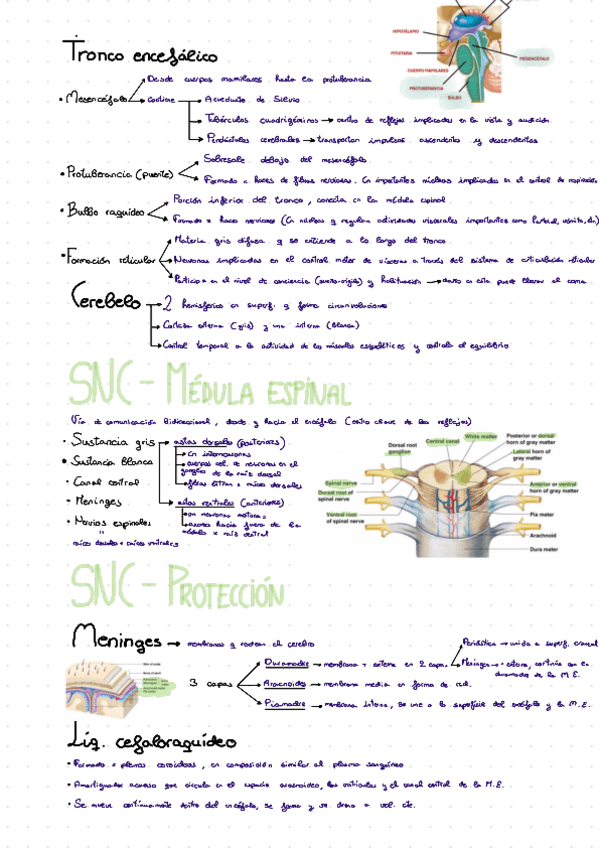 HIPOTÁLAMO
PITUITARIA
CUERPO MAMILARES
PROTUBERANCIA
BULBO
MESENCÉFALO
Tronco encefálico
• Mesencéfalo → Desde cuerpos mamilares hasta la protuberancia
→ Contiene → Acueducto de Silvio
→ Tubérculos cuadrigéminos → centro de reflejos implicados en la vista y audición.
→ Pedúnculos cerebrales → transportan impulsos ascendentes y descendentes
• Protuberancia (puente) → Sobresale debajo del mesencéfalo.
→ Formado x haces de fibras nerviosas. Con importantes núcleos implicados en el control de respiración
• Bulbo raquídeo → Porción inferior del tronco, conecta con la médula espinal
→ Formado x haces nerviosos (Con núcleos q regulan actividades viscerales importantes como
• Formación reticular → Materia gris difusa q se extiende a lo largo del tronco
→ Neuronas implicadas en el control motor de vísceras a través del sistema de
→ Participa en el nivel de conciencia (sueño-vigilia) y habituación → daño en esta puede llevar al coma
Cerebelo → 2 hemisferios en superf. y forma circunvoluciones
→ Corteza externa (gris) y una interna (blanca)
→ Control temporal a la actividad de los músculos esqueléticos y controla el equilibrio
SNC - MÉDULA ESPINAL
Vía de comunicación bidireccional, desde y hacia el encéfalo (centro clave de los reflejos)
• Sustancia gris → astas dorsales (posteriores)
→ Con interneuronas
→ cuerpos cel. de neuronas en el ganglio de la raíz dorsal
→ fibras entran x raíces dorsales
→ astas ventrales (anteriores)
→ con neuronas motoras
→ axones hacia fuera de la médula x raíz ventral
• Sustancia blanca
• Canal central
• Meninges
• Nervios espinales
"
raíces dorsales + raíces ventrales
Dorsal root ganglion
Central canal
White matter
Posterior or dorsal horn of gray matter
Lateral horn of gray matter
Spinal nerve
Dorsal root of spinal nerve
Ventral root of spinal nerve
Anterior or ventral horn of gray matter
Pia mater
Arachnoid
Dura mater
SNC - PROTECCIÓN
Meninges → membranas q rodean el cerebro
3 capas → Duramadre → membrana + externa en 2 capas → Perióstica → unida a superf. craneal
→ Meníngea → + externa, continúa con la duramadre de la M.E.
→ Aracnoides → membrana media en forma de red.
→ Piamadre → membrana interna, se une a la superficie del encéfalo y la M.E.
Líq. cefalorraquídeo
• Formado x plexos coroideos, con composición similar al plasma sanguíneo
• Amortiguador acuoso que circula en el espacio aracnoideo, los ventrículos y el canal central de la M.E.
• Se mueve continuamente dentro del encéfalo, se forma y se drena a vel. cte.